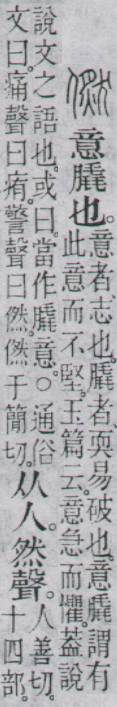 㒄意膬也。意者、志也。膬者、耎易破也。意膬謂有
此意而不堅。玉篇云。意急而懼。葢說
說文之語也。或曰。當作膬意。○通俗
文曰。痛聲曰痏。警聲曰㒄。㒄于簡切。从人。然聲。人善切。
十四部。